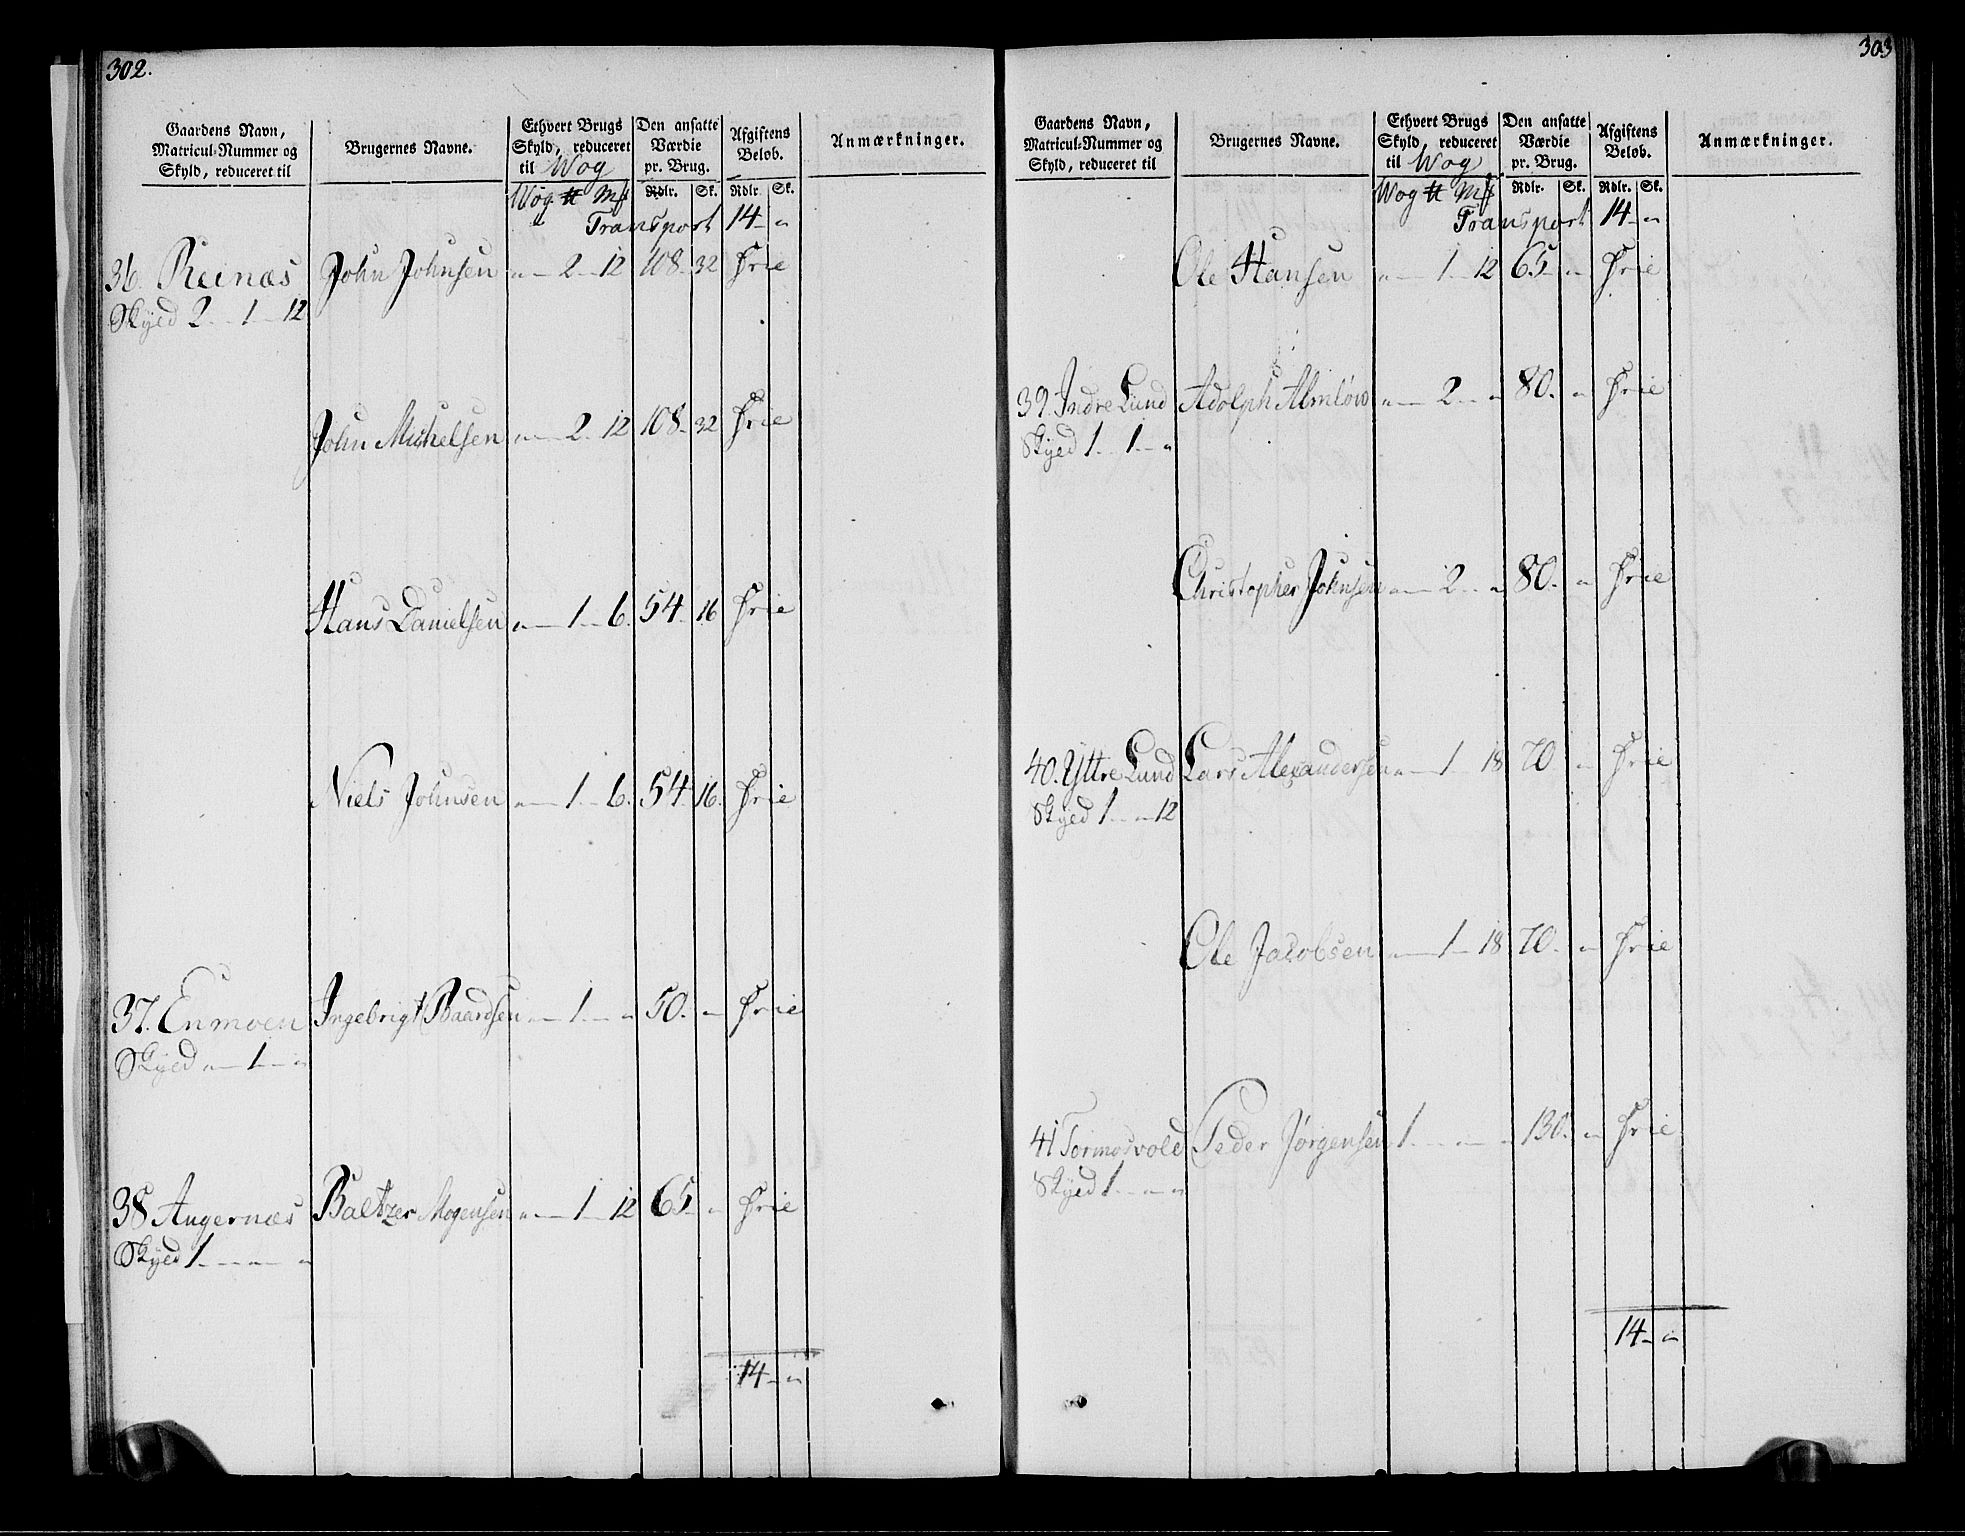 302.
Gaardens Navn, Matricul-Nummer og Skyld, reduceret til
Brugernes Navne.
Ethvert Brugs Skyld, reduceret til Wog
Den ansatte Værdie pr. Brug.
Afgiftens Beløb.
Anmærkninger.
Wog ℔ Mk Rdlr. Sk. Rdlr. Sk.
Transport 14 - "
36. Reinæs John Johnsen " - 2 - 12 108 - 32 Frie
Skyld 2 - 1 - 12
John Michelsen " - 2 - 12 108 - 32 Frie
Hans Danielsen " - 1 - 6. 54 - 16 Frie
Niels Johnsen " - 1 - 6. 54 - 16. Frie
37. Enmoen Ingebrigt Baardsen " - 1 - " 50. - " Frie
Skyld " - 1 - "
38 Angernæs Baltzer Mogensen " - 1 - 12 65 - " Frie
Skyld 1 - " - "
14 - "
303
Gaardens Navn, Matricul-Nummer og Skyld, reduceret til
Brugernes Navne.
Ethvert Brugs Skyld, reduceret til Wog
Den ansatte Værdie pr. Brug.
Afgiftens Beløb.
Anmærkninger.
Wog ℔ Mk Rdlr. Sk. Rdlr. Sk.
Transport 14 - "
Ole Hansen " - 1 - 12 65 - " Frie
39. Indre Lund Adolph Almløw " - 2 - " 80. - " Frie
Skyld 1 - 1 - "
Christopher Johnsen " - 2 - " 80. - " Frie
40. Yttre Lund Lars Alexandersen " - 1 - 18 70 - " Frie
Skyld 1 - " - 12
Ole Jacobsen " - 1 - 18 70. - " Frie
41 Tormodvold Peder Jørgensen 1 - " - " 130. - " Frie
Skyld 1 - " - "
14 - "